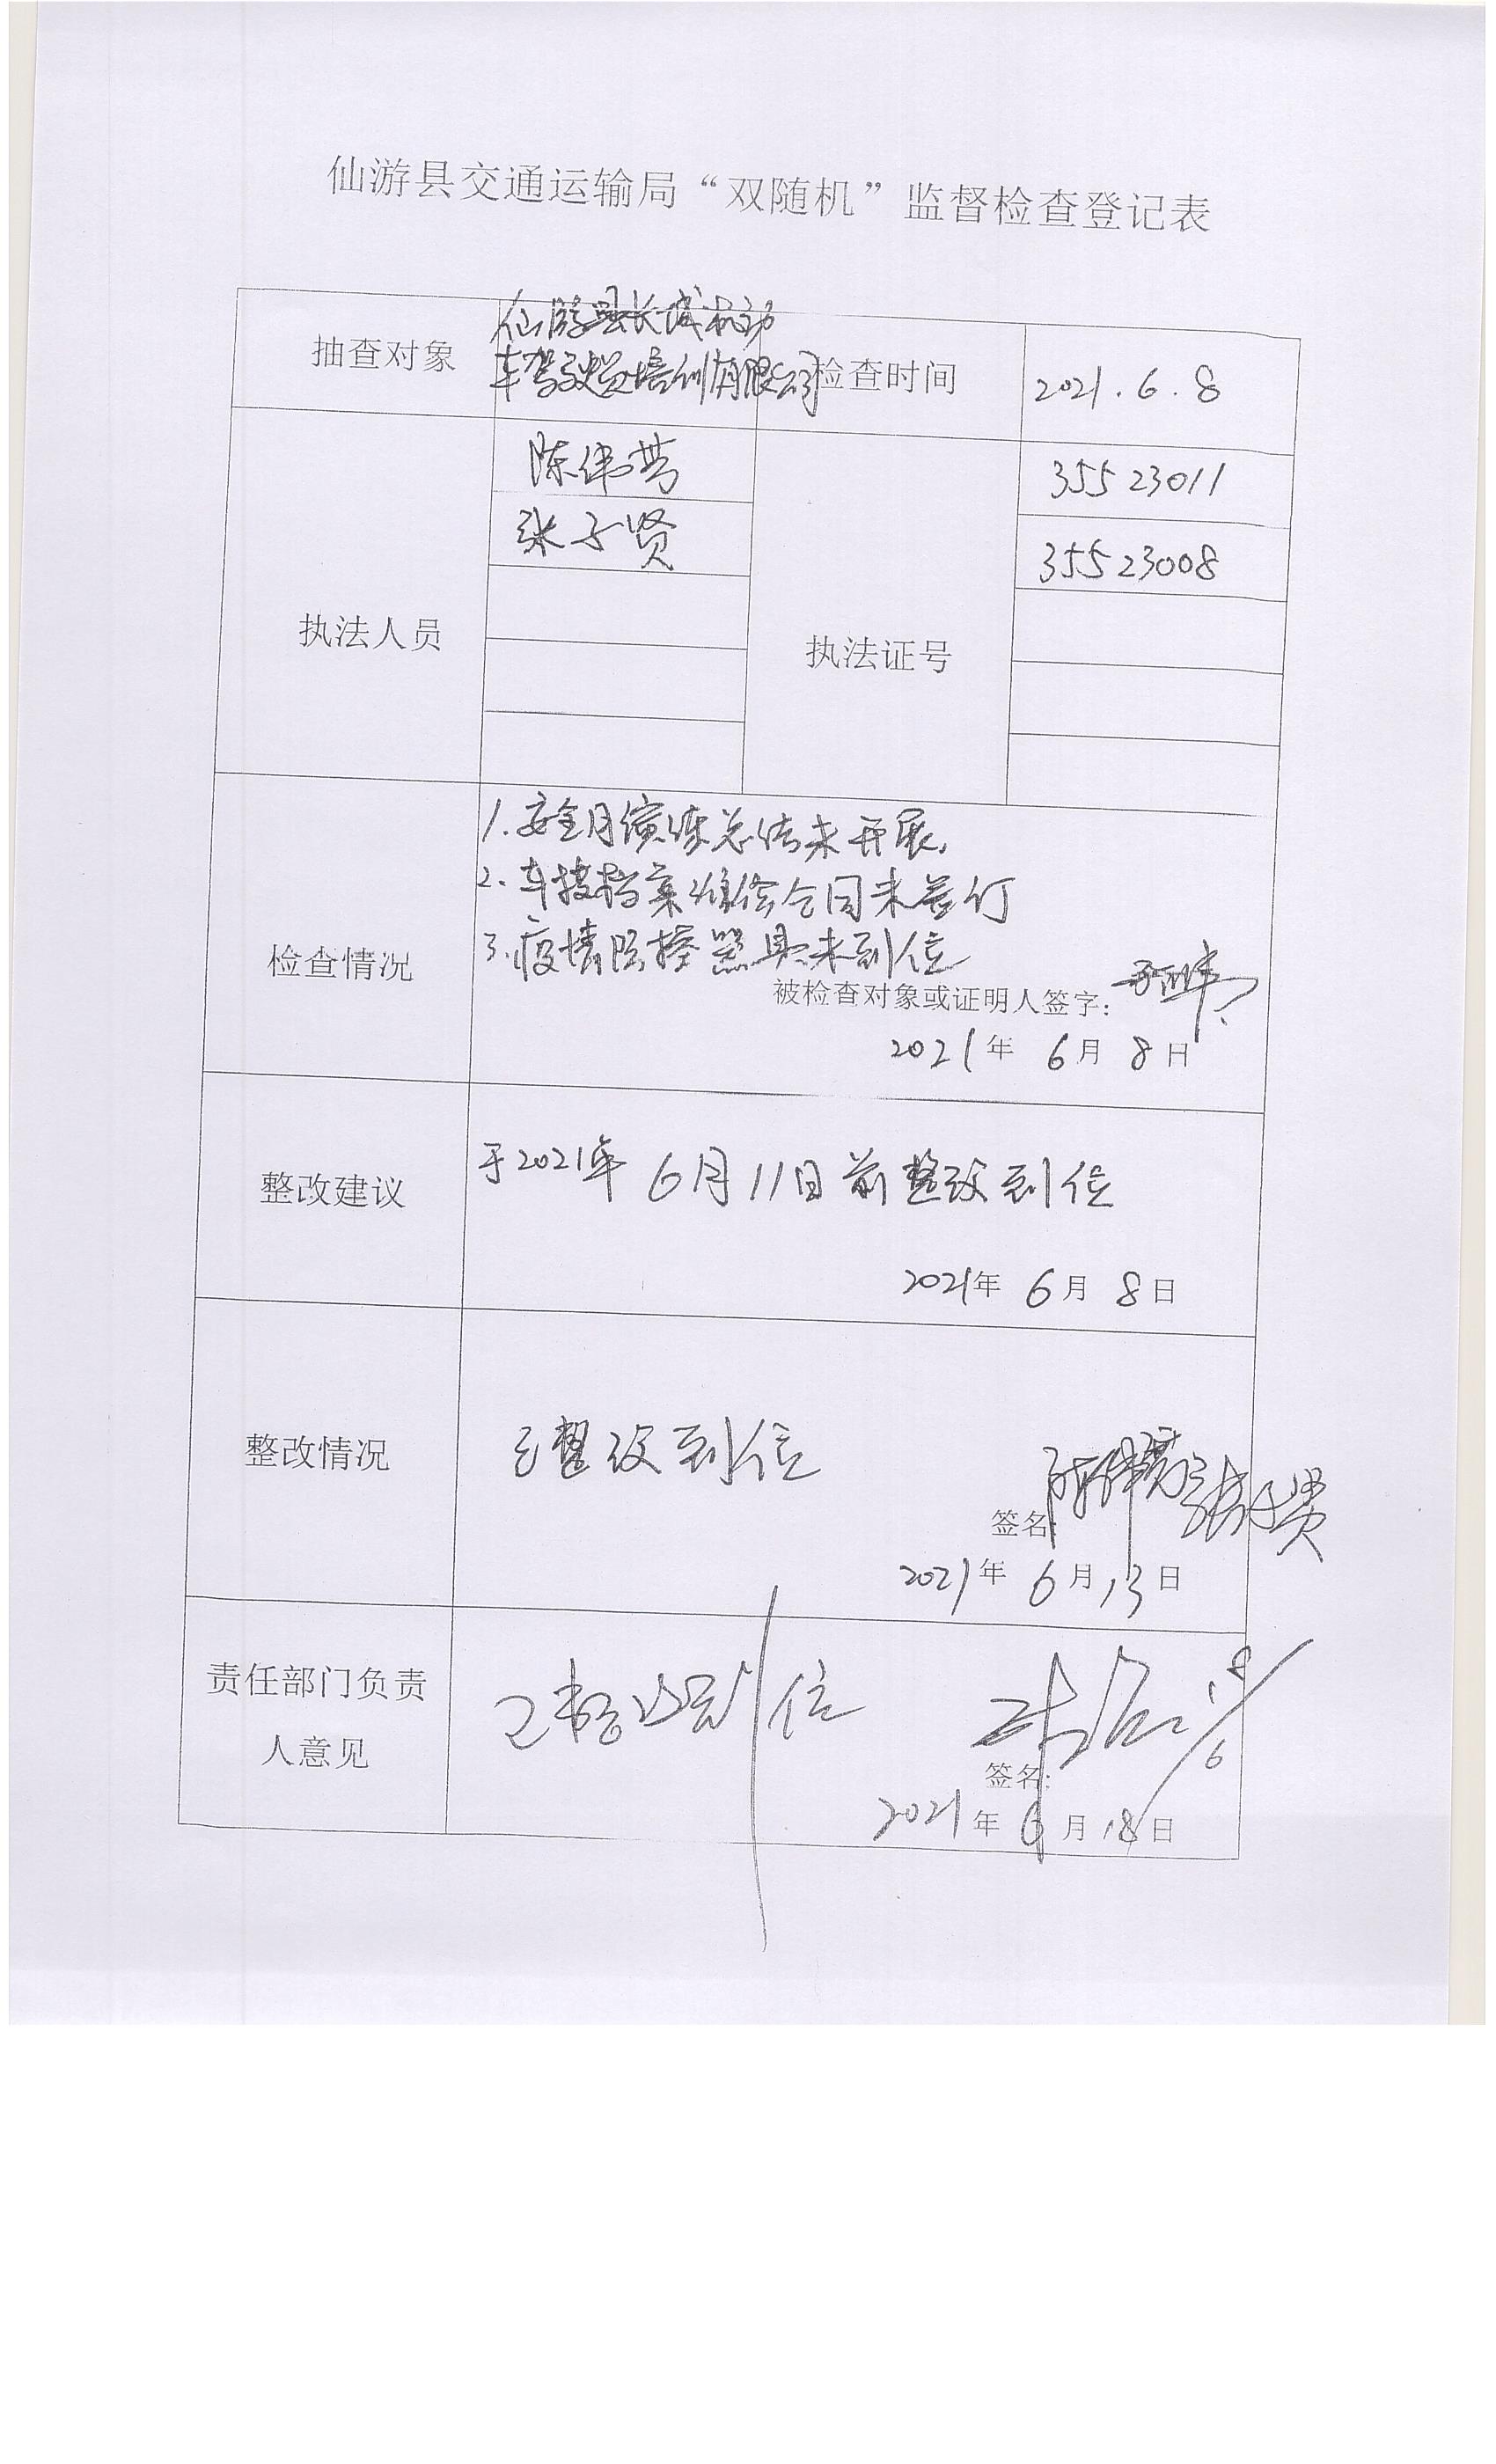 仙游县交通运输局“双随机”监督检查登记表
抽查对象
仙游县长城机动
车驾驶员培训有限公司
检查时间
2021.6.8
执法人员
陈伟芳
张子贤
执法证号
35523011
35523008
检查情况
1.安全月演练总结未开展,
2.车技档案维修合同未签订
3.疫情防控器具未到位
被检查对象或证明人签字:
2021年 6月 8日
整改建议
于2021年 6月11日前整改到位
2021年 6月 8日
整改情况
已整改到位
签名: 陈伟芳 张子贤
2021年 6月13日
责任部门负责
人意见
已整改到位
签名:
2021年 6月18日